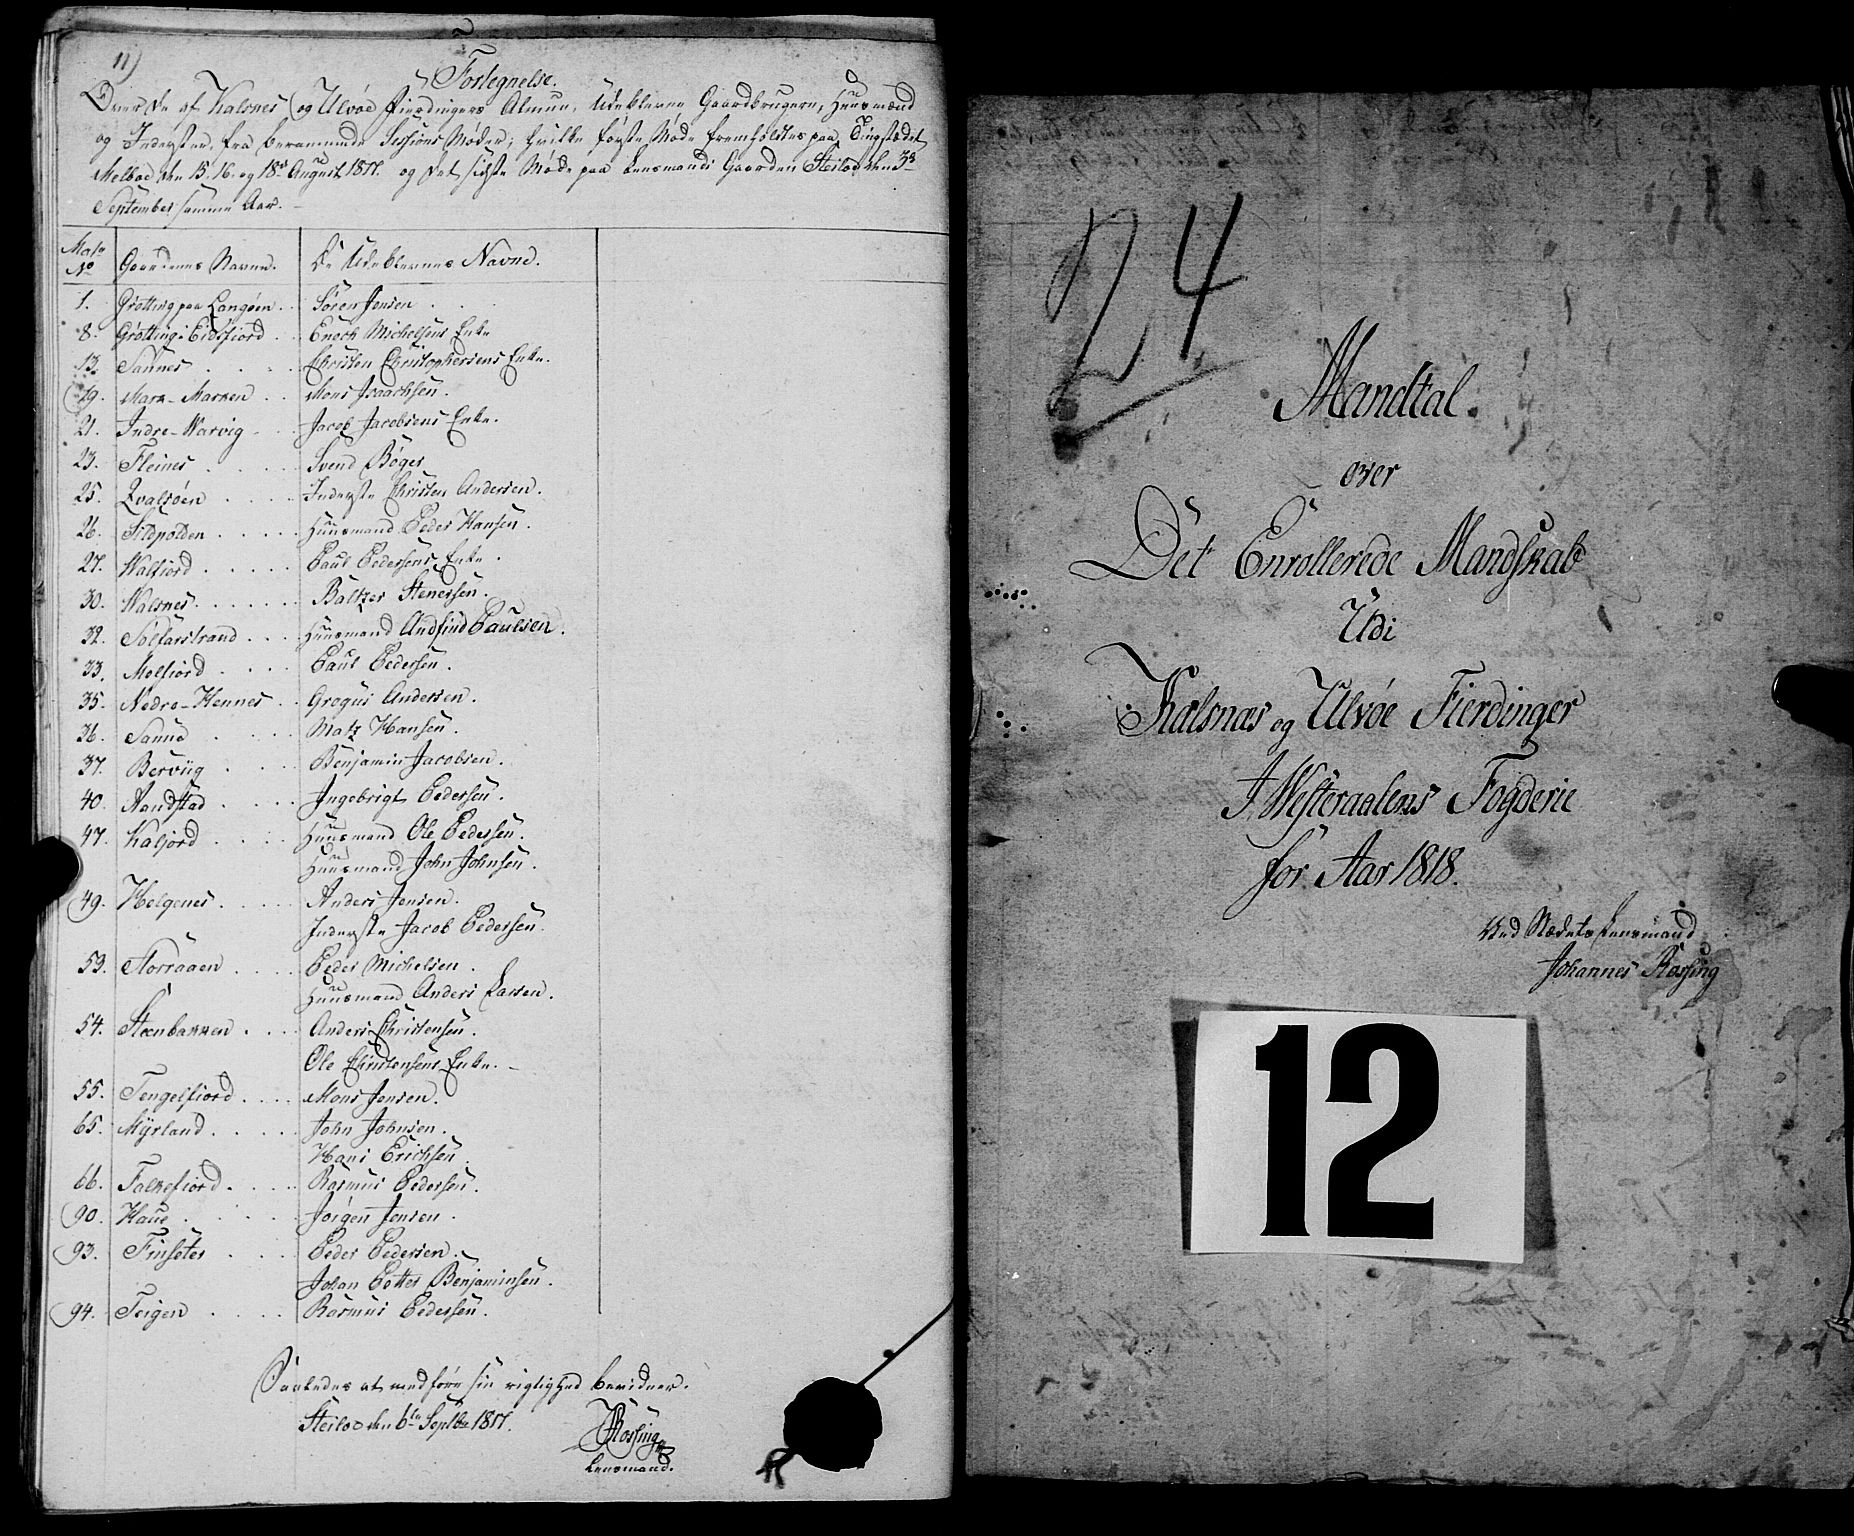 11)
Fortegnelse.
Over de af Kalsnes og Ulvøe Fierdingers Almue, Udeblevne Gaardbrugere, Huusmænd
og Inderster, fra berammede Sessions Møder; hvilke første Møde fremholdtes paa Tingstædet
Melboe den 15. 16. og 18de August 1817. og det sidste Møde paa Lensmands Gaarden Steiloe den 3de
September samme Aar.
Matr No
Gaardenes Navne.
De Udeblevnes Navne.
1. Grøtting paa Langøen . . Søren Jensen . .
8. Grøtting i Eidsfiord . . Enoch Michelsens Enke
13. Sannes . . . . Christen Christophersens Enke.
19. Mark-Marken . . Mons Isaachsen.
21. Indre-Warvig . . Jacob Jacobsens Enke.
23. Fleines . . . . Svend Bøger
25. Qvalsøen . . . . Inderste Christen Andersen.
26. Sildpolden . . . . Huusmand Peder Hansen.
27. Walfiord . . . . . Paul Pedersens Enke .
30. Kalsnes . . . . . . Baltzer Stenersen.
32. Søttarstrand . . . . Huusmand Andfind Paulsen.
33. Melfiord . . . . Paul Pedersen.
35. Nedre-Hennes . . Gregus Andersen.
36. Sannd . . . . Matz Hansen.
37. Bervüg . . . . Benjamin Jacobsen.
40. Aandstad . . . . Ingebrigt Pedersen.
47. Kaljord . . . . Huusmand Ole Pedersen.
Huusmand John Johnsen.
49. Helgenes . . . . . Anders Jensen.
Inderste Jacob Pedersen.
53. Storraaen . . . . Peder Michelsen .
Huusmand Anders Larsen.
54. Steenbakken . . . . Anders Christensen.
Ole Christensens Enke.
55. Tengelfiord . . . . Mons Jensen.
65. Myrland . . . . . John Johnsen.
Hans Erichsen.
66. Falkefiord . . . . Rasmus Pedersen.
90. Haue . . . . . Jørgen Jensen .
93. Finsæter . . . . Peder Pedersen.
Johan Petter Benjaminsen.
94. Teigen . . . . Rasmus Pedersen.
Saaledes at medføre sin rigtighed bevidner.
Steiloe den 6te Septbr 1817.
JRossing
Lensmand.
24
Mandtal
over
Det Enrollerede Mandskab
Udi
Kalsnæs og Ulvøe Fierdinger
I Westeraalens Fogderie
for Aar 1818.
Ved Stædets Lensmand
Johannes Rossing
12